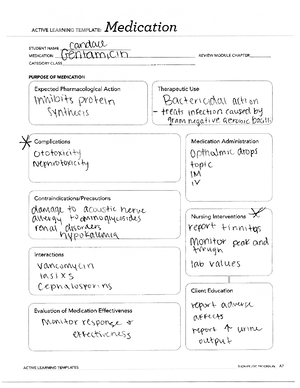 ACTIVE LEARNING TEMPLATE: Medication
STUDENT NAME Candace
MEDICATION Gentamicin REVIEW MODULE CHAPTER
CATEGORY CLASS
PURPOSE OF MEDICATION
Expected Pharmacological Action
Inhibits protein
synthesis
Therapeutic Use
Bactericidal action
- treat infection caused by
gram negative aerobic bacilli
Complications
Ototoxicity
Nephrotoxicity
Medication Administration
Opthalmic drops
topic
IM
IV
Contraindications/Precautions
damage to acoustic nerve
allergy to aminoglycosides
renal disorders
hypokalemia
Nursing Interventions
report tinnitus
Monitor peak and
trough
lab values
Interactions
Vancomycin
lasixs
Cephalosporins
Client Education
report adverse
affects
report ↑ urine
output
Evaluation of Medication Effectiveness
Monitor response +
effectiveness
ACTIVE LEARNING TEMPLATES
A7